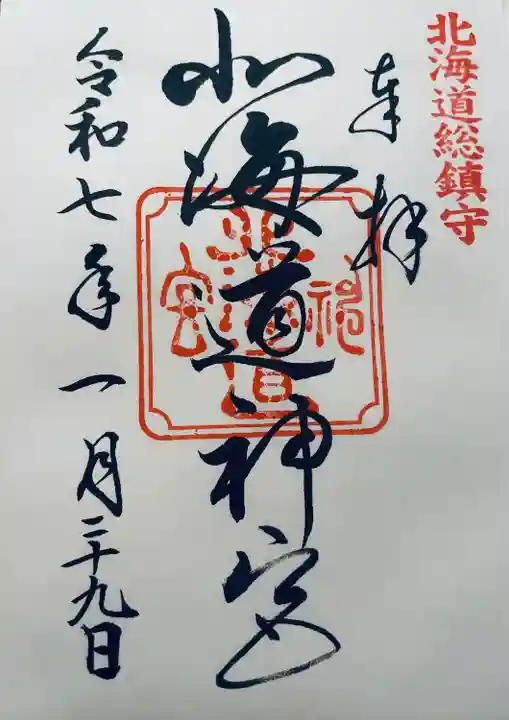 北海道総鎮守
奉拝
北海道神宮
令和七年一月二十九日